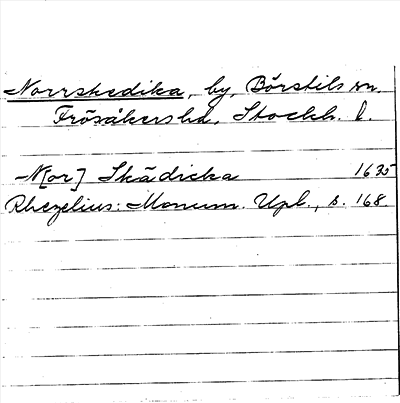 Norrskedika, by, Börstils sn.
Frösåkers hd, Stockh. l.
N[or] Skädicka 1635
Rhezelius: Monum. Upl., s. 168